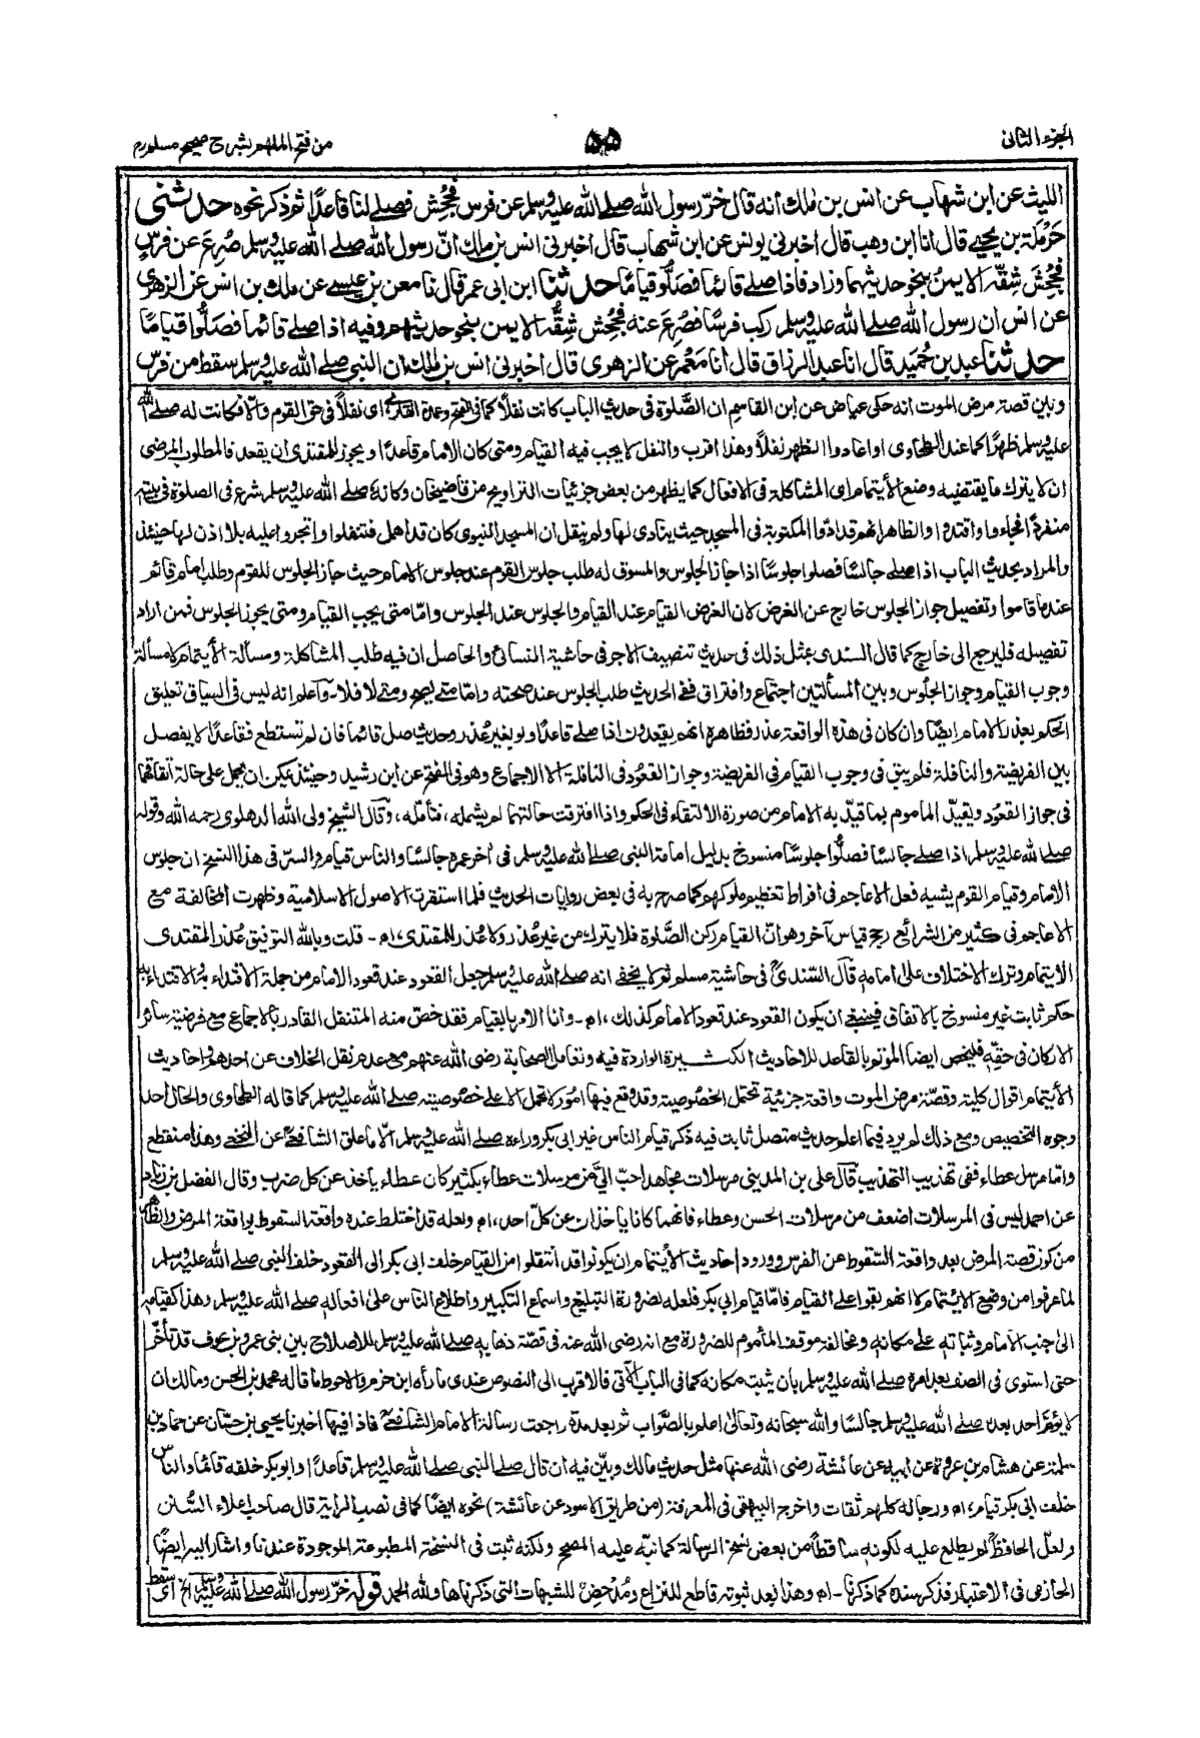 الجزء الثانى
۵۵
من فتح الملهم بشرح صحيح مسلم رم
الليث عن ابن شهاب عن انس بن ملك انه قال خرّ رسول الله صلے الله عليه وسلم عن فرس فجُحِش فصلے لنا قاعدًا ثم ذكر نحوه حدثنى
حَرْمَلة بن يحيے قال انا ابن وهب قال اخبرنى يونس عن ابن شهاب قال اخبرنى انس بن ملك انّ رسول الله صلے الله عليه وسلم صُرِعَ عن فرسٍ
فجُحِشَ شِقّه الايمن بنحو حديثهما وزاد فاذا صلے قائما فصَلُّوا قيامًا حدثنا ابن ابى عمر قال نا معن بن عيسے عن ملك بن انس عن الزهرى
عن انس ان رسول الله صلے الله عليه وسلم ركب فرسًا فصُرِعَ عنه فجُحِش شِقُّه الايمن بنحو حديثهم وفيه اذا صلے قائما فصَلُّوا قيامًا
حدثنا عبد بن حُمَيد قال انا عبد الرزاق قال انا مَعْمَر عن الزهرى قال اخبرنى انس بن ملك ان النبى صلے الله عليه وسلم سقط من فرس
وبين قصة مرض الموت انه حكى عياض عن ابن القاسم ان الصّلوة فى حديث الباب كانت نفلًا كما فى الفتح وعمدة القارى اى نفلًا فى حق القوم والا فكانت له صلے الله
عليه وسلم ظهرًا كما عند الطحاوى او اعادوا الظهر نفلًا وهذا اقرب والنفل لا يجب فيه القيام ومتى كان الامام قاعدًا ويجوز للمقتدى ان يقعد فالمطلوب المرضى
ان لا يترك ما يقتضيه وضع الأيتمام اى المشاكلة فى الافعال كما يظهر من بعض جزئيات التراويح من قاضيخان وكانه صلے الله عليه وسلم شرع فى الصلوة فى بيته
منفردًا فجاءوا واقتدوا والظاهر انهم قد ادّوا المكتوبة فى المسجد حيث ينادى لها ولم ينقل ان المسجد النبوى كان قد اهمل فتنفلوا واتجروا عليه بلا اذن لها حينئذ
والمراد بحديث الباب اذا صلے جالسًا فصلوا جلوسًا اذا جاز الجلوس والمسوق له طلب جلوس القوم عند جلوس الامام حيث جاز الجلوس للقوم وطلب امام قائم
عندما قاموا وتفصيل جواز الجلوس خارج عن الغرض لان الغرض القيام عند القيام والجلوس عند الجلوس وامّا متى يجب القيام ومتى يجوز الجلوس فمن اراد
تفصيله فليرجع الى خارج كما قال السندى بمثل ذلك فى حديث تنصيف الاجر فى حاشية النسائى والحاصل ان فيه طلب المشاكلة ومسألة الأيتمام كا مسألة
وجوب القيام وجواز الجلوس وبين المسألتين اجتماع وافتراق ففى الحديث طلب الجلوس عند صحته وامّا متے يصح ومتے لا فلا۔ واعلم انه ليس فى السياق تعليق
الحكم بعذر الامام ايضًا وان كان فى هذه الواقعة عذر فظاهره انهم يقعدون اذا صلے قاعدًا ولو بغير عُذر وحديث صل قائما فان لم تستطع فقاعدًا لا يفصل
بين الفريضة والنافلة فلو بقى فى وجوب القيام فى الفريضة وجواز القعود فى النافلة الا الاجماع وهو فى الفتح عن ابن رشيد وحينئذ يمكن ان يحمل على حالة اتفاقهما
فى جواز القعود ويقيّد الماموم بما قيّد به الامام من صورة الالتقاء فى الحكم واذا افترقت حالتهما لم يشمله، فتأمّله، وقال الشيخ ولى الله الدهلوى رحمه الله وقوله
صلے الله عليه وسلم اذا صلے جالسًا فصلُّوا جلوسًا منسوخ بدليل امامة النبى صلے الله عليه وسلم فى اٰخر عمره جالسًا والناس قيام والسرّ فى هذا النسخ ان جلوس
الامام وقيام القوم يشبه فعل الاعاجم فى افراط تعظيم ملوكهم كما صرح به فى بعض روايات الحديث فلما استقرت الاصول الاسلامية وظهرت المخالفة مع
الاعاجم فى كثير من الشرائع رجح قياس آخر وهو انّ القيام ركن الصّلوة فلا يترك من غير عُذر ولا عُذر للمقتدى، ام - قلت وبالله التوفيق عُذر المقتدى
الايتمام وترك الاختلاف علىٰ امامه قال السّندىؒ فى حاشية مسلم ثم لا يخفے انه صلے الله عليه وسلم جعل القعود عند قعود الامام من جملة الاقتداء به والاقتداء به
حكم ثابت غير منسوخ بالاتفاق فينبغے ان يكون القعود عند قعود الامام كذلك، ام - وانا الامر بالقيام فقد خصّ منه المتنفل القادر بالاجماع مع فرضية سائر
الاركان فى حقّه فليخص ايضا الموتم بالقاعد للاحاديث الكثيرة الواردة فيه وتعامل الصحابة رضى الله عنهم مع عدم نقل الخلاف عن احد هم واحاديث
الأيتمام اقوال كلية وقصّة مرض الموت واقعة جزئية تحتمل الخصوصية وقد وقع فيها امُور لا تحمل الا على خصوصيته صلے الله عليه وسلم كما قاله الطحاوى والحال احد
وجوه التخصيص ومع ذلك لم يرد فيما اعلم حديث متصل ثابت فيه ذكر قيام الناس غير ابى بكر وراءه صلے الله عليه وسلم الّا ما علق الشافعےؒ عن النخعے وهذا منقطع
وامّا مرسل عطاء ففى تهذيب التهذيب قال على بن المدينى مرسلات مجاهد احبّ الىّ من مرسلات عطاء بكثير كان عطاء يأخذ عن كل ضرب وقال الفضل بن زياد
عن احمد ليس فى المرسلات اضعف من مرسلات الحسن وعطاء فانهما كانا يأخذان عن كلّ احد، ام ولعله قد اختلط عنده واقعة السقوط بواقعة المرض والظاهر
من كون قصة المرض بعد واقعة السّقوط عن الفرس وورود احاديث الأيتمام ان يكونوا قد انتقلوا من القيام خلف ابى بكر الى القعود خلف النبى صلے الله عليه وسلم
لما عرفوا من وضع الايتمام لا انهم بقوا على القيام فامّا قيام ابى بكر فلعله لضرورة التبليغ واسماع التكبير واطلاع الناس علىٰ افعاله صلے الله عليه وسلم، وهذا كقيامه
الىٰ جنب الامام وثباته علىٰ مكانه ومخالفة موقف المأموم للضرورة مع انه رضى الله عنه فى قصّة ذهابه صلے الله عليه وسلم للاصلاح بين بنى عمرو بن عوف قد تأخّر
حتى استوى فى الصف بعد امره صلے الله عليه وسلم بان يثبت مكانه كما فى الباب الآتى فالاقرب الى النصوص عندى ما رأه ابن حزم والاحوط ما قاله محمد بن الحسن ومالك ان
لا يؤمّ احد بعده صلے الله عليه وسلم جالسًا والله سبحانه وتعالىٰ اعلم بالصّواب ثم بعد مدة راجعت رسالة الامام الشافعےؒ فاذا فيها اخبرنا يحيى بن حسّان عن حماد بن
سلمة عن هشام بن عروة عن ابيه عن عائشة رضى الله عنها مثل حديث مالك وبيّن فيه ان قال صلے النبى صلے الله عليه وسلم قاعدًا وابو بكر خلفه قائمًا والناس
خلف ابى بكر قيام، ام ورجاله كلهم ثقات واخرج البيهقى فى المعرفة (من طريق الاسود عن عائشة) نحوه ايضًا كما فى نصب الراية قال صاحب اعلاء السُّنن
ولعلّ الحافظ لم يطلع عليه لكونه ساقطًا من بعض نسخ الرسالة كما نبّه عليه المصحح ولكنه ثبت فى النسخة المطبوعة الموجودة عندنا واشار اليه ايضًا
الحازمى فى الاعتبار فذكر سنده كما ذكرنا - ام وهذا بعد ثبوته قاطع للنزاع ومُدحض للشبهات التى ذكرناها ولله الحمد قوله خرّ رسول الله صلے الله عليه وسلم الخ اى سقط